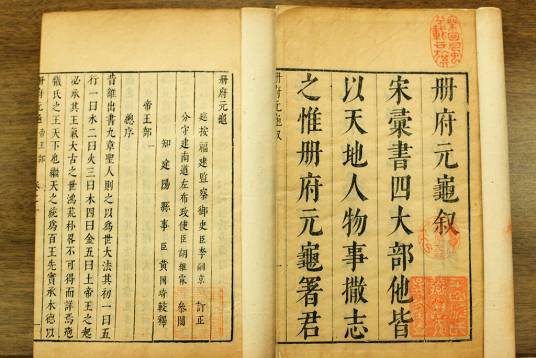 册府元龜叙
宋彙書四大部他皆
以天地人物事撒志
之惟册府元龜箸君
册府元龜叙
册府元龜
廵按福建監察御史臣李嗣京 訂正
分守建南道左布政使臣胡維霖 參閱
知建陽縣事臣黃國琦較釋
帝王部一
總序
昔雒出書九章聖人則之以爲世大法其初一曰五
行一曰水二曰火三曰木四曰金五曰土帝王之起
必承其王氣太古之世鴻荒朴畧不可得而詳焉庖
犧氏之王天下也繼天之統爲百王先實承木德以
册府元龜 帝王部 卷之一